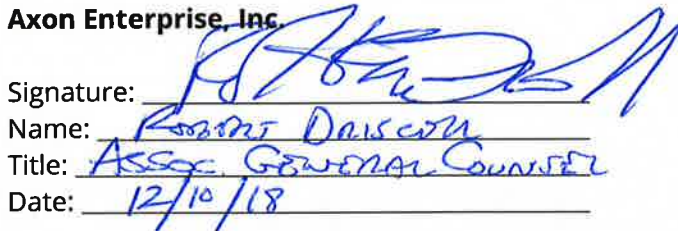 Axon Enterprise, Inc.
Signature:
Name: ROBERT DRISCOLL
Title: ASSOC. GENERAL COUNSEL
Date: 12/10/18